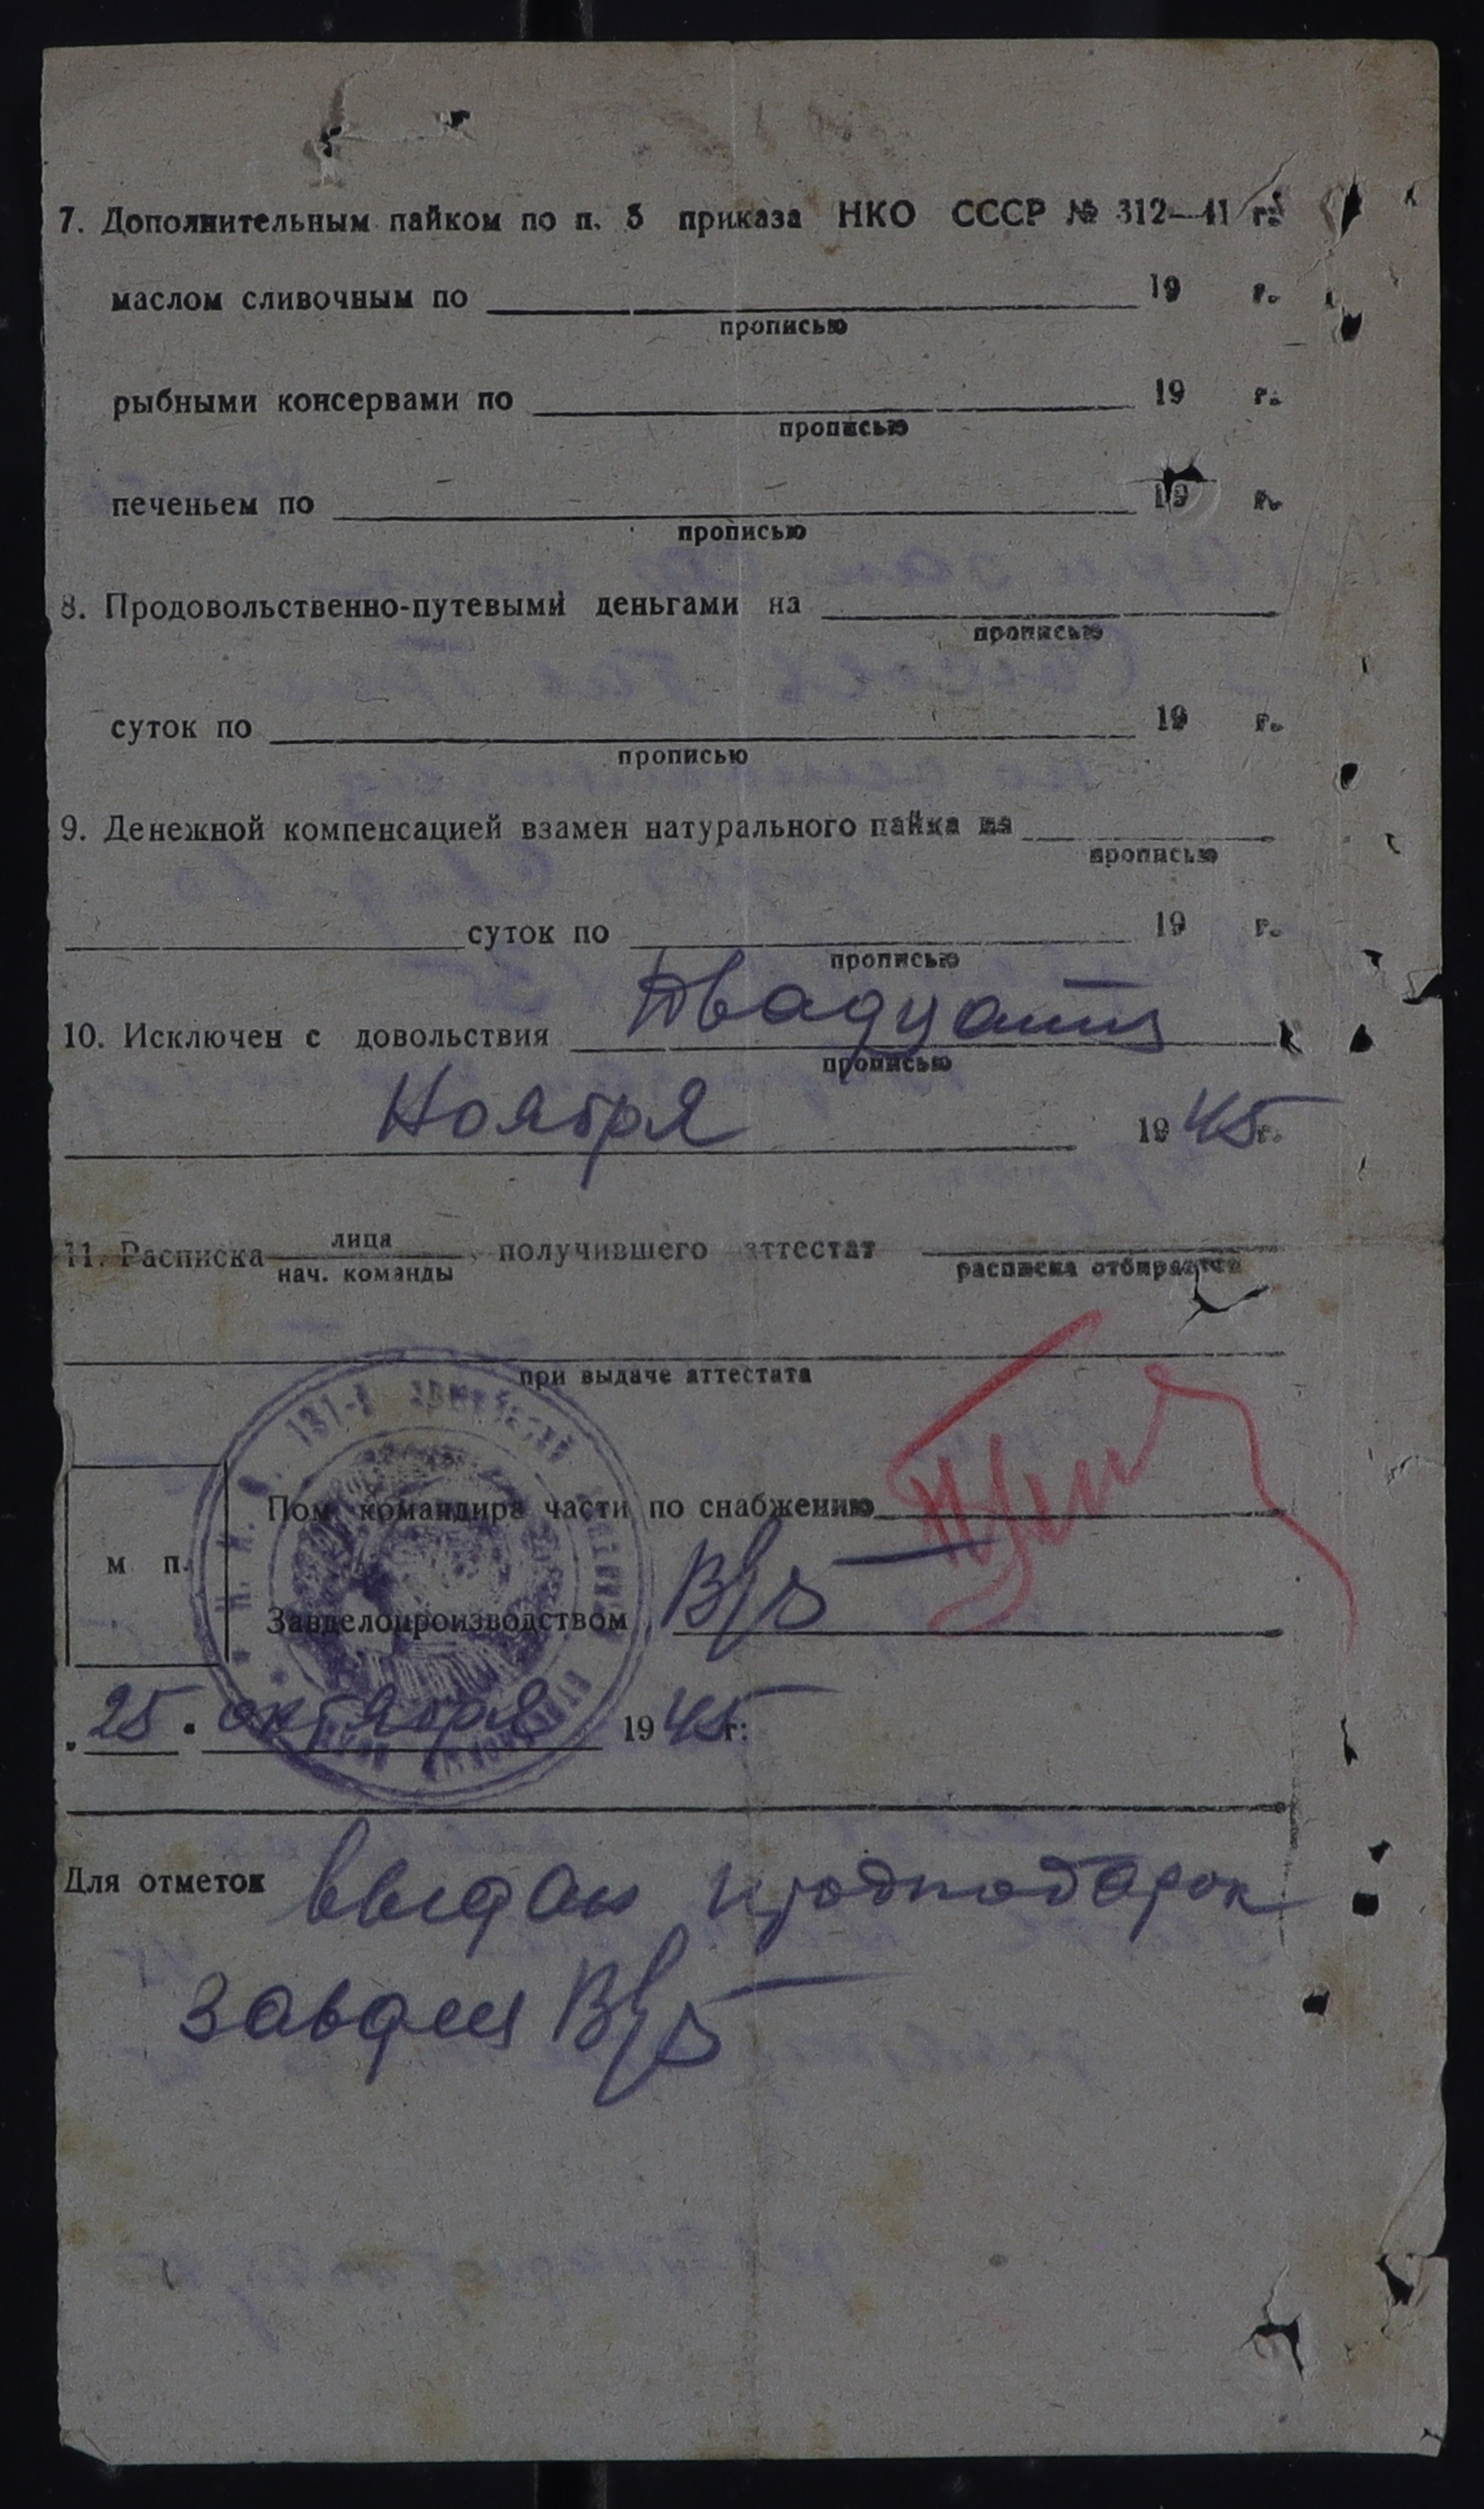 7. Дополнительным пайком по п. 5 приказа НКО СССР № 312—41 г.
маслом сливочным по 19 г.
прописью
рыбными консервами по 19 г.
прописью
печеньем по 19 г.
прописью
8. Продовольственно-путевыми деньгами на
прописью
суток по 19 г.
прописью
9. Денежной компенсацией взамен натурального пайка на
прописью
суток по 19 г.
прописью
10. Исключен с довольствия Двадцатый
прописью
Ноября 1945 г.
11. Расписка лица получившего аттестат
нач. команды расписка отбирается
при выдаче аттестата
Пом. командира части по снабжению
м п.
Завделопроизводством
25. октября 1945 г.
Для отметок выдан продподарок
завдел